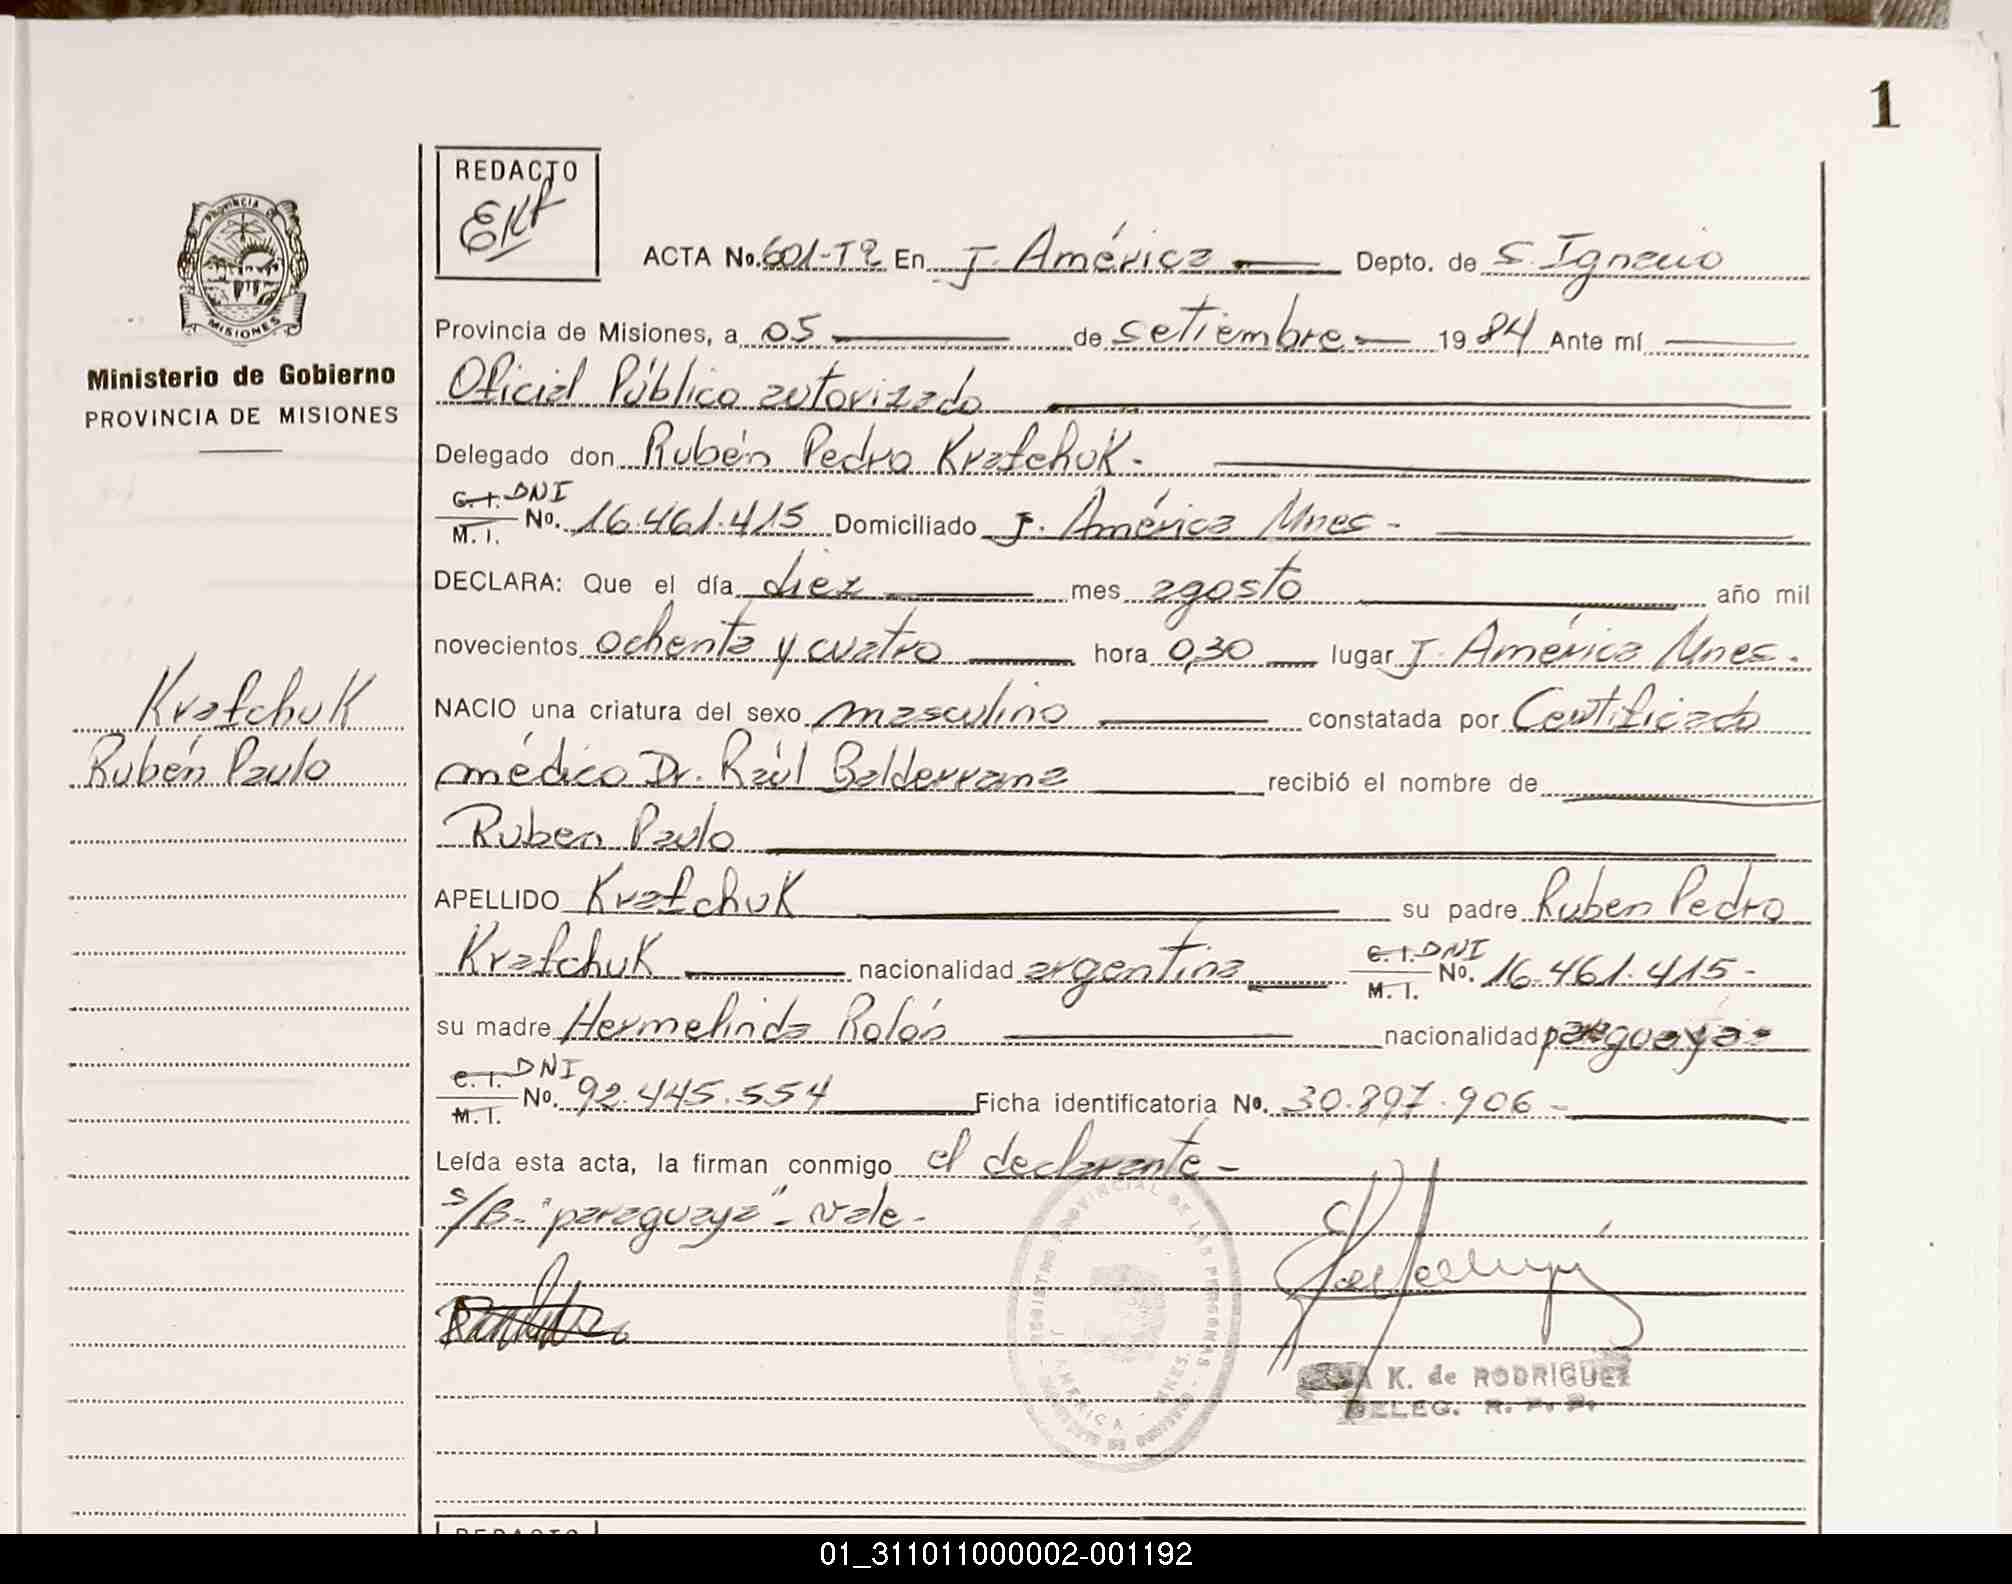 1
REDACTO
EKR
PROVINCIA DE
MISIONES
Ministerio de Gobierno
PROVINCIA DE MISIONES
Kratchuk
Rubén Paulo
ACTA No. 601-T2 En J. América Depto. de S. Ignacio
Provincia de Misiones, a 05 de setiembre 1984 Ante mí
Oficial Público autorizado
Delegado don Rubén Pedro Kratchuk.
C. I. DNI
M. I. No. 16.461.415 Domiciliado J. América Mnes -
DECLARA: Que el día diez mes agosto año mil
novecientos ochenta y cuatro hora 0,30 lugar J. América Mnes.
NACIO una criatura del sexo masculino constatada por Certificado
médico Dr. Raúl Balderrama recibió el nombre de
Ruben Paulo
APELLIDO Kratchuk su padre Ruben Pedro
Kratchuk nacionalidad argentina C. I. DNI M. I. No. 16.461.415-
su madre Hermelinda Rolón nacionalidad paraguaya-
C. I. DNI
M. I. No. 92.445.554 Ficha identificatoria No. 30.897.906-
Leída esta acta, la firman conmigo el declarante-
s/B- "paraguaya"- vale-
REGISTRO PROVINCIAL DE LAS PERSONAS
AMERICA - MNES.
K. de RODRIGUEZ
DELEG. R. P. P.
REDACTO
01_311011000002-001192